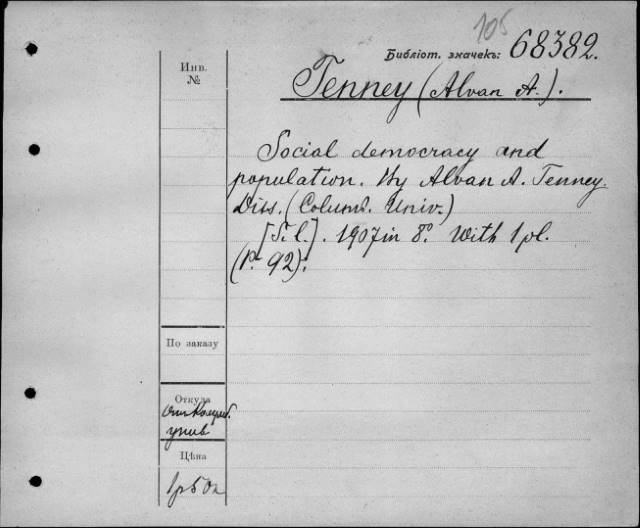 105
Библіот. значекъ: 68382.
Инв.
№
Tenney (Alvan A.).
Social democracy and
population. By Alvan A. Tenney.
Diss. (Columb. Univ.)
[S. l.]. 1907 in 8°. With 1 pl.
(P. 92).
По заказу
Откуда
унив
Цѣна
1р50к